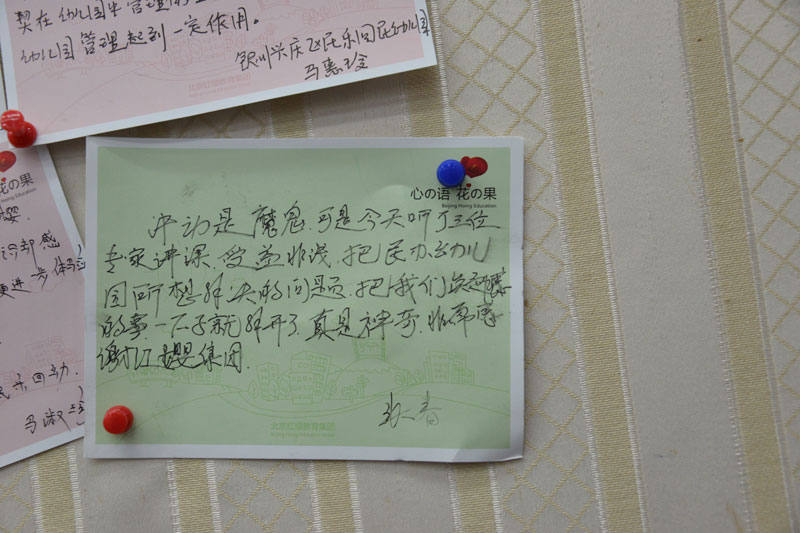 契在幼儿园中管理
幼儿园管理起到一定作用。
银川兴庆区民乐回民幼儿园
马惠玲
北京红缨教育集团
花の果
Beijing Hoing Education
冷却感
更进一步体
回动.
马淑
心の语 花の果
Beijing Hoing Education
冲动是魔鬼.可是今天听了三位
专家讲课,受益非浅.把民办幼儿
园所想解决的问题.把我们
的事.一下子就解开了.真是神奇.非常感
谢红婴集团.
春
北京红缨教育集团
Beijing Hoing Education Group